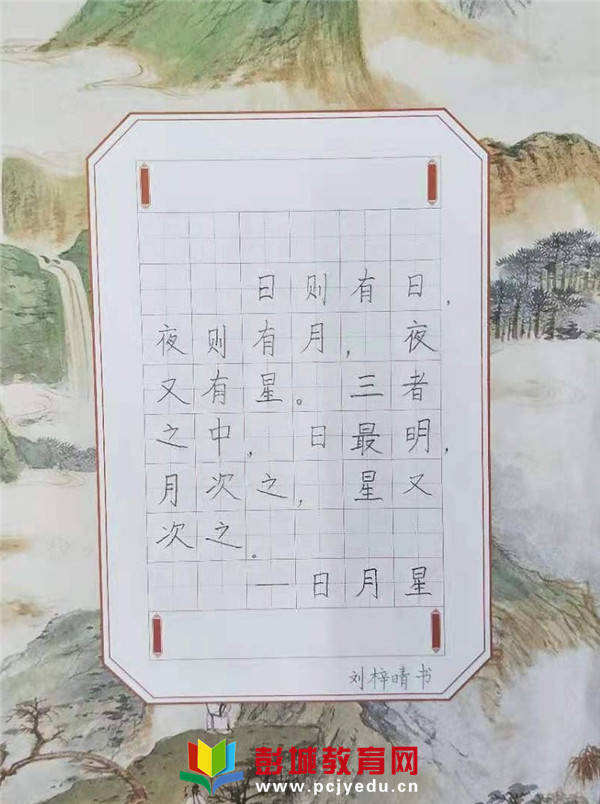 日则有日，
夜则有月，夜
又有星。三者
之中，日最明，
月次之，星又
次之。
—日月星
刘梓晴书
彭城教育网
www.pcjyedu.cn